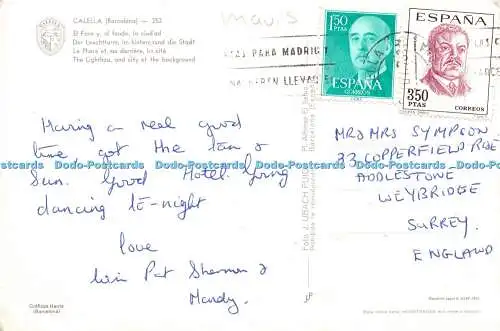 CALELLA (Barcelona) — 253
El Faro y, al fondo, la ciudad
Der Leuchtturm, im hintergrund die Stadt
Le Phare et, au derrière, la cité
The Lighthse, and city at the background
Mavis
1'50 PTAS
ESPAÑA
CORREOS
ESPAÑA
3'50 PTAS
CORREOS
PARA MADRID
LLEVAR
Having a real good
time got the tan &
Sun. Good Hotel. Going
dancing to-night
love
Pat Sherman &
Mandy.
MR & MRS SYMPSON
33 COPPERFIELD RISE
ADDLESTONE
WEYBRIDGE
SURREY.
ENGLAND
Dodo-Postcards Dodo-Postcards Dodo-Postcards Dodo-Postcards Dodo-Postcards
Gráficas Harris
(Barcelona)